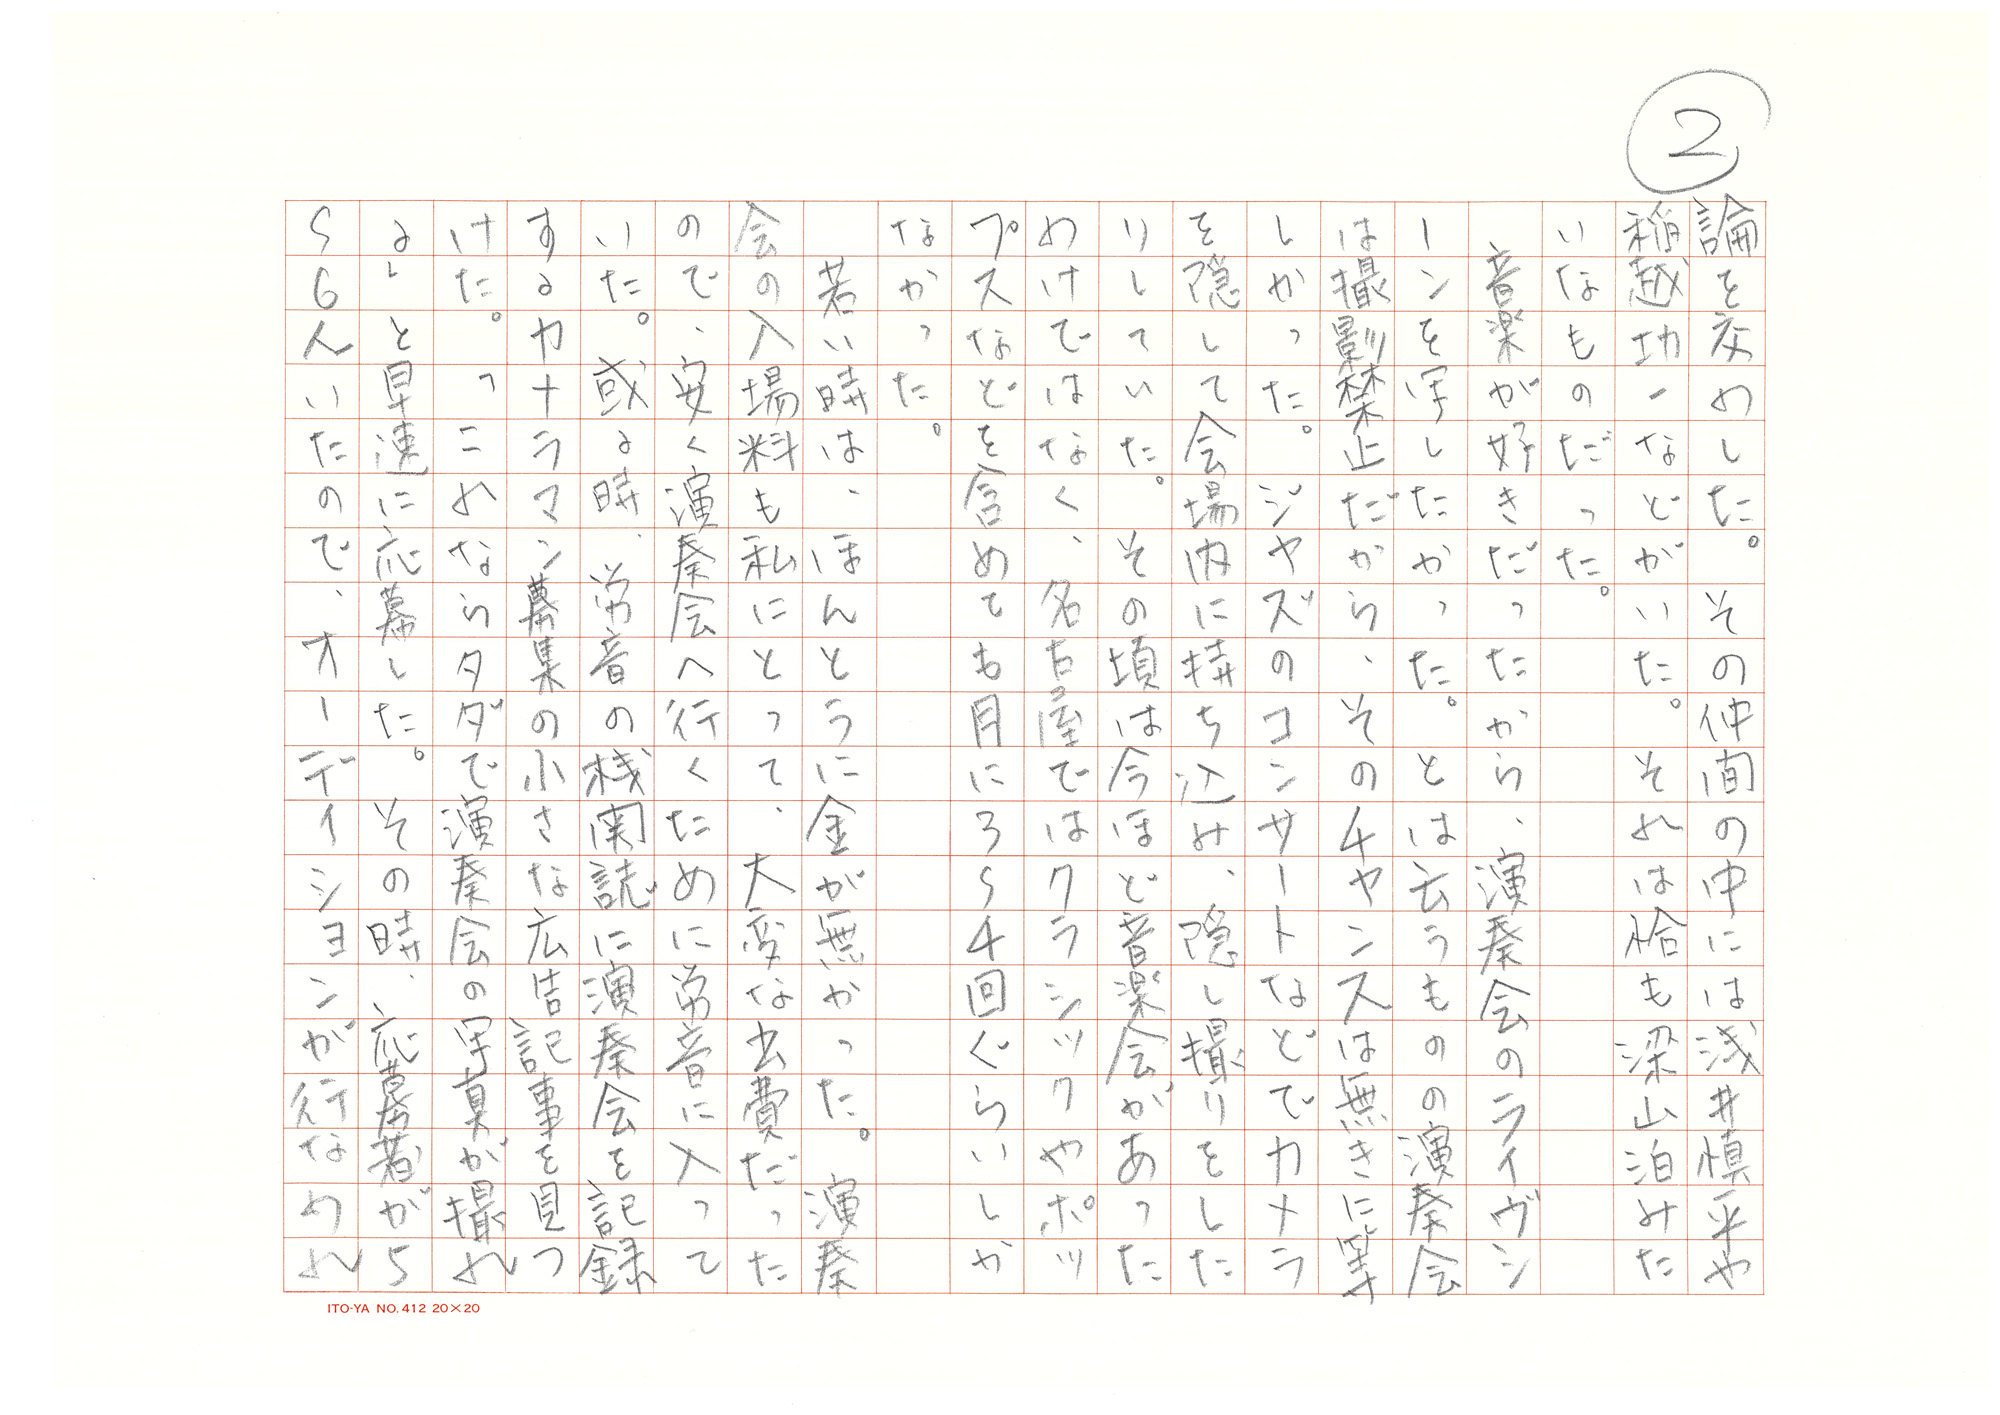 2
論を交わした。その仲間の中には浅井慎平や
稲越功一などがいた。それは恰も梁山泊みた
いなものだった。
音楽が好きだったから、演奏会のライヴシ
ーンを写したかった。とは云うものの演奏会
は撮影禁止だから、そのチャンスは無きに等
しかった。ジャズのコンサートなどでカメラ
を隠して会場内に持ち込み、隠し撮りをした
りしていた。その頃は今ほど音楽会があった
わけではなく、名古屋ではクラシックやポッ
プスなどを含めても月に3〜4回ぐらいしか
なかった。
若い時は、ほんとうに金が無かった。演奏
会の入場料も私にとって、大変な出費だった
ので、安く演奏会へ行くために労音に入って
いた。或る時、労音の機関誌に演奏会を記録
するカメラマン募集の小さな広告記事を見つ
けた。「これならタダで演奏会の写真が撮れ
る」と早速に応募した。その時、応募者が5
〜6人いたので、オーディションが行なわれ
ITO-YA NO.412 20×20